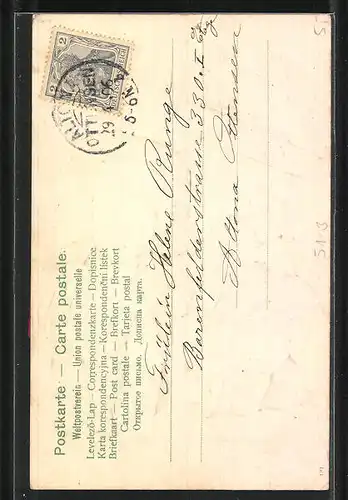 Postkarte — Carte postale.
Weltpostverein — Union postale universelle
Levelező-Lap — Correspondenzkarte — Dopisnice
Karta korespondencyjna — Korespondenční lístek
Briefkaart — Post card — Brefkort — Brevkort
Cartolina postale — Tarjeta postal
Открытое письмо. Дописна карта.
2
2
DEUTSCHES REICH
ALTONA
OTTENSEN
29
5-6N
Fräulein Helene Runge
Barenfelderstrasse 330. I Etg
Altona Ottensen
513